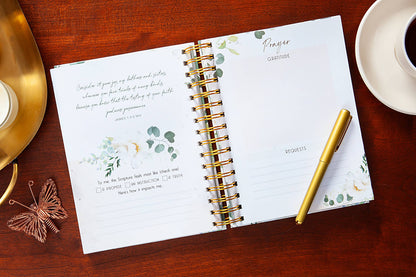 Consider it pure joy, my brothers and sisters,
whenever you face trials of many kinds,
because you know that the testing of your faith
produces perseverance.
JAMES 1:2-3 NIV
To me, this Scripture feels most like (check one):
☐ A PROMISE ☐ AN INSTRUCTION ☐ A TRUTH
Here's how it impacts me...
Prayer
GRATITUDE
REQUESTS